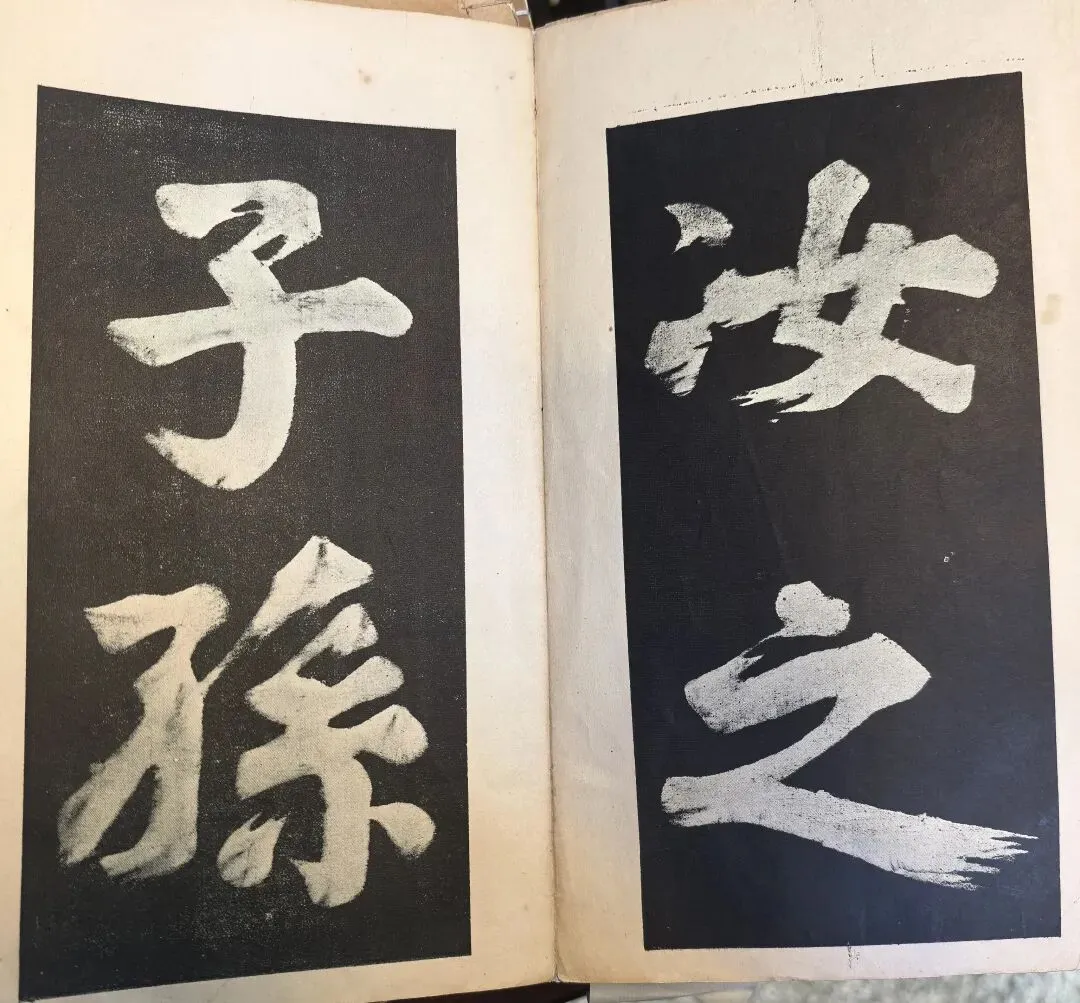 汝之
子孫